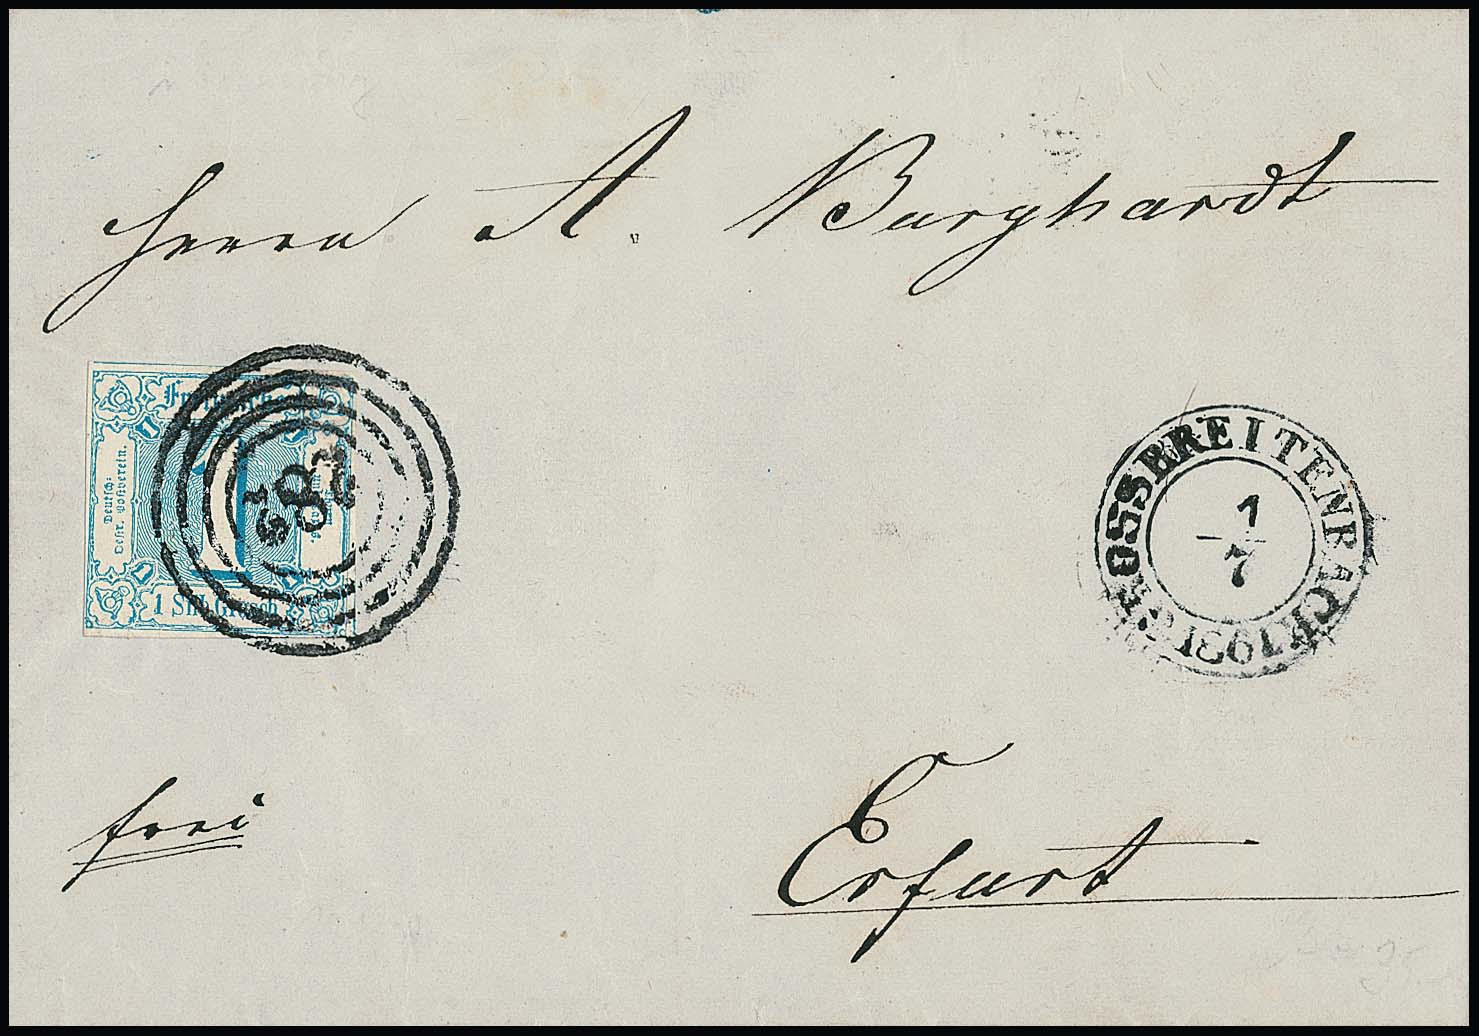 Herrn A. Burghardt
Deutsch-
Oestr. Postverein.
1
1 Silb. Grosch.
GROSSBREITENBACH
1
7
frei
Erfurt